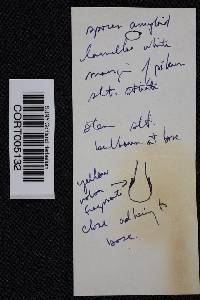 spores amyloid
lamellae white
margin of pileus
slt. striate
stem slt.
bulbous at base
yellow
volva
fragments
close adhering to
base.
CORT005132